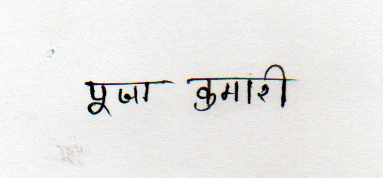 पूजा कुमारी